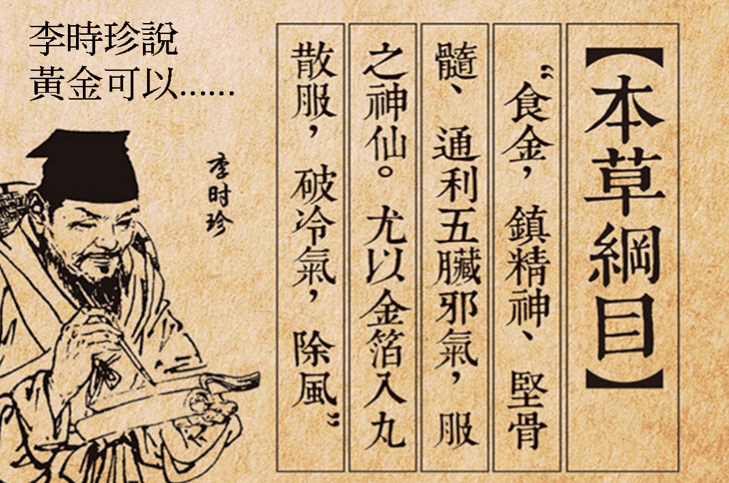 李時珍說
黃金可以……
李时珍
【本草綱目】
“食金，鎮精神、堅骨
髓、通利五臟邪氣，服
之神仙。尤以金箔入丸
散服，破冷氣，除風”